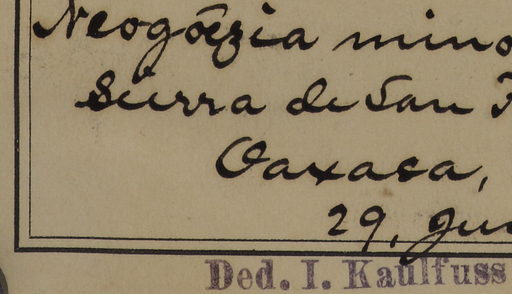 Neogöezia mino
Sierra de San
Oaxaca,
29, Jun
Ded. I. Kaulfuss